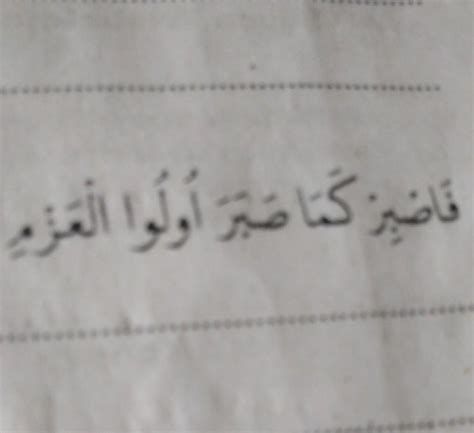 فَاصْبِرْ كَمَا صَبَرَ أُولُوا الْعَزْمِ